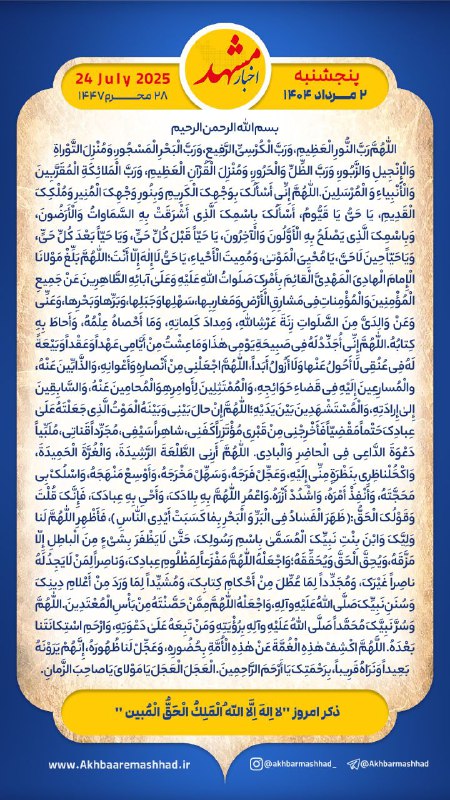 اخبار مشهد
پنجشنبه
۲ مرداد ۱۴۰۴
24 July 2025
۲۸ محرم ۱۴۴۷
بسم الله الرحمن الرحیم
اللَّهُمَّ رَبَّ النُّورِ الْعَظِیمِ، وَرَبَّ الْکُرْسِیِّ الرَّفِیعِ، وَرَبَّ الْبَحْرِ الْمَسْجُورِ، وَمُنْزِلَ التَّوْرَاةِ
وَالْإِنْجِیلِ وَالزَّبُورِ، وَرَبَّ الظِّلِّ وَالْحَرُورِ، وَمُنْزِلَ الْقُرْآنِ الْعَظِیمِ، وَرَبَّ الْمَلائِکَةِ الْمُقَرَّبِینَ
وَالْأَنْبِیَاءِ وَالْمُرْسَلِینَ. اللَّهُمَّ إِنِّی أَسْأَلُکَ بِوَجْهِکَ الْکَرِیمِ وَبِنُورِ وَجْهِکَ الْمُنِیرِ وَمُلْکِکَ
الْقَدِیمِ، یَا حَیُّ یَا قَیُّومُ، أَسْأَلُکَ بِاسْمِکَ الَّذِی أَشْرَقَتْ بِهِ السَّمَاوَاتُ وَالْأَرَضُونَ،
وَبِاسْمِکَ الَّذِی یَصْلَحُ بِهِ الْأَوَّلُونَ وَالْآخِرُونَ، یَا حَیّاً قَبْلَ کُلِّ حَیٍّ، وَیَا حَیّاً بَعْدَ کُلِّ حَیٍّ،
وَیَا حَیّاً حِینَ لَا حَیَّ، یَا مُحْیِیَ الْمَوْتَىٰ، وَمُمِیتَ الْأَحْیَاءِ، یَا حَیُّ لَا إِلٰهَ إِلّا أَنْتَ؛ اللَّهُمَّ بَلِّغْ مَوْلانَا
الْإِمامَ الْهَادِیَ الْمَهْدِیَّ الْقَائِمَ بِأَمْرِکَ صَلَوَاتُ اللّٰهِ عَلَیْهِ وَعَلَىٰ آبَائِهِ الطَّاهِرِینَ عَنْ جَمِیعِ
الْمُؤْمِنِینَ وَالْمُؤْمِنَاتِ فِی مَشَارِقِ الْأَرْضِ وَمَغَارِبِهَا، سَهْلِهَا وَجَبَلِهَا، وَبَرِّهَا وَبَحْرِهَا، وَعَنِّی
وَعَنْ وَالِدَیَّ مِنَ الصَّلَوَاتِ زِنَةَ عَرْشِ اللّٰهِ، وَمِدادَ کَلِماتِهِ، وَمَا أَحْصَاهُ عِلْمُهُ، وَأَحاطَ بِهِ
کِتابُهُ. اللَّهُمَّ إِنِّی أُجَدِّدُ لَهُ فِی صَبِیحَةِ یَوْمِی هٰذَا وَمَا عِشْتُ مِنْ أَیَّامِی عَهْداً وَعَقْداً وَبَیْعَةً
لَهُ فِی عُنُقِی لَا أَحُولُ عَنْهَا وَلَا أَزُولُ أَبَداً. اللَّهُمَّ اجْعَلْنِی مِنْ أَنْصَارِهِ وَأَعْوَانِهِ، وَالذَّابِّینَ عَنْهُ،
وَالْمُسَارِعِینَ إِلَیْهِ فِی قَضَاءِ حَوَائِجِهِ، وَالْمُمْتَثِلِینَ لِأَوَامِرِهِ وَالْمُحَامِینَ عَنْهُ، وَالسَّابِقِینَ
إِلَى إِرَادَتِهِ، وَالْمُسْتَشْهَدِینَ بَیْنَ یَدَیْهِ؛ اللَّهُمَّ إِنْ حَالَ بَیْنِی وَبَیْنَهُ الْمَوْتُ الَّذِی جَعَلْتَهُ عَلَىٰ
عِبادِکَ حَتْماً مَقْضِیّاً فَأَخْرِجْنِی مِنْ قَبْرِی مُؤْتَزِراً کَفَنِی، شَاهِراً سَیْفِی، مُجَرِّداً قَنَاتِی، مُلَبِّیاً
دَعْوَةَ الدَّاعِی فِی الْحَاضِرِ وَالْبَادِی. اللَّهُمَّ أَرِنِی الطَّلْعَةَ الرَّشِیدَةَ، وَالْغُرَّةَ الْحَمِیدَةَ،
وَاکْحُلْ نَاظِرِی بِنَظْرَةٍ مِنِّی إِلَیْهِ، وَعَجِّلْ فَرَجَهُ، وَسَهِّلْ مَخْرَجَهُ، وَأَوْسِعْ مَنْهَجَهُ، وَاسْلُکْ بِی
مَحَجَّتَهُ، وَأَنْفِذْ أَمْرَهُ، وَاشْدُدْ أَزْرَهُ. وَاعْمُرِ اللَّهُمَّ بِهِ بِلادَکَ، وَأَحْیِ بِهِ عِبادَکَ، فَإِنَّکَ قُلْتَ
وَقَوْلُکَ الْحَقُّ: ﴿ظَهَرَ الْفَسَادُ فِی الْبَرِّ وَالْبَحْرِ بِمَا کَسَبَتْ أَیْدِی النَّاسِ﴾، فَأَظْهِرِ اللَّهُمَّ لَنَا
وَلِیَّکَ وَابْنَ بِنْتِ نَبِیِّکَ الْمُسَمَّىٰ بِاسْمِ رَسُولِکَ، حَتَّىٰ لَا یَظْفَرَ بِشَیْءٍ مِنَ الْباطِلِ إِلّا
مَزَّقَهُ، وَیُحِقَّ الْحَقَّ وَیُحَقِّقَهُ؛ وَاجْعَلْهُ اللَّهُمَّ مَفْزَعاً لِمَظْلُومِ عِبادِکَ، وَنَاصِراً لِمَنْ لَا یَجِدُ لَهُ
نَاصِراً غَیْرَکَ، وَمُجَدِّداً لِمَا عُطِّلَ مِنْ أَحْکَامِ کِتابِکَ، وَمُشَیِّداً لِمَا وَرَدَ مِنْ أَعْلامِ دِینِکَ
وَسُنَنِ نَبِیِّکَ صَلَّى اللّٰهُ عَلَیْهِ وَآلِهِ، وَاجْعَلْهُ اللَّهُمَّ مِمَّنْ حَصَّنْتَهُ مِنْ بَأْسِ الْمُعْتَدِینَ. اللَّهُمَّ
وَسُرَّ نَبِیَّکَ مُحَمَّداً صَلَّى اللّٰهُ عَلَیْهِ وَآلِهِ بِرُؤْیَتِهِ وَمَنْ تَبِعَهُ عَلَىٰ دَعْوَتِهِ، وَارْحَمِ اسْتِکَانَتَنا
بَعْدَهُ. اللَّهُمَّ اکْشِفْ هٰذِهِ الْغُمَّةَ عَنْ هٰذِهِ الْأُمَّةِ بِحُضُورِهِ، وَعَجِّلْ لَنا ظُهُورَهُ، إِنَّهُمْ یَرَوْنَهُ
بَعِیداً وَنَرَاهُ قَرِیباً، بِرَحْمَتِکَ یَا أَرْحَمَ الرَّاحِمِینَ. الْعَجَلَ الْعَجَلَ یَا مَوْلایَ یَا صاحِبَ الزَّمانِ.
ذکر امروز "لا اِلهَ اِلَّا اللّهُ الْمَلِکُ الْحَقُّ الْمُبین"
www.Akhbaaremashhad.ir
@akhbarmashhad_
@Akhbarmashhad